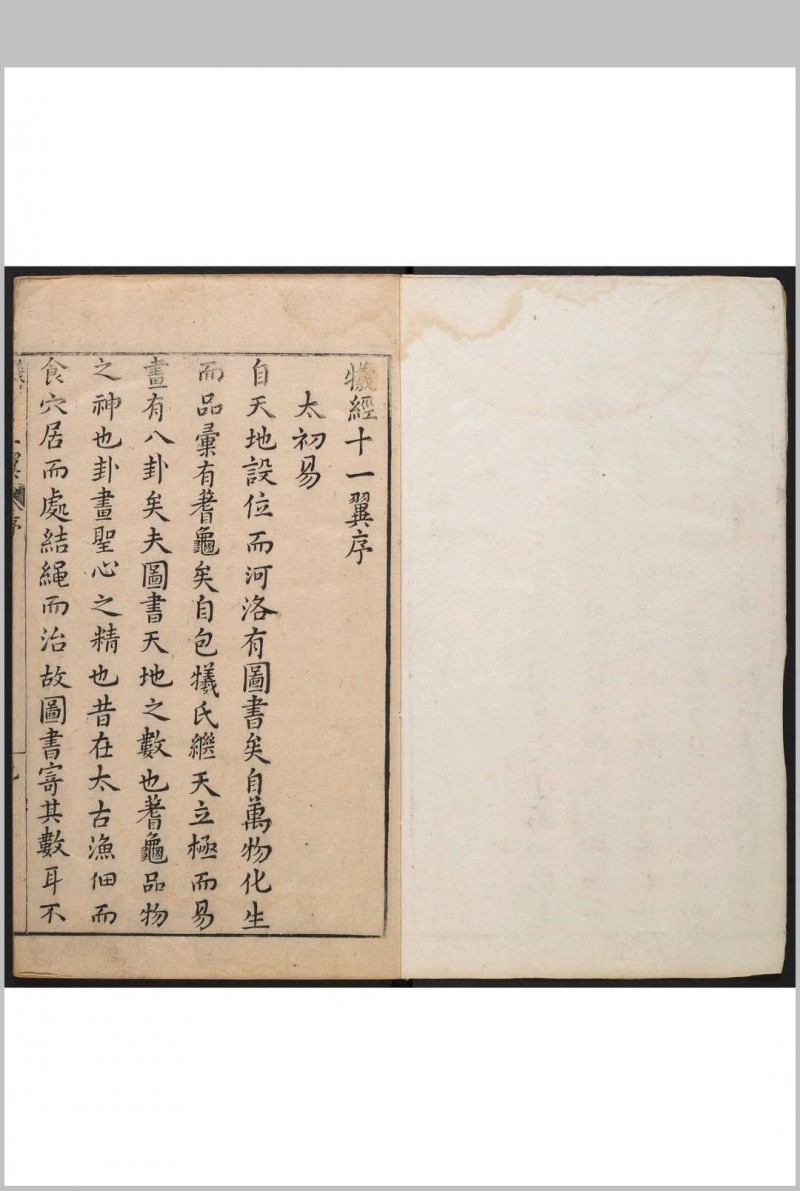 犧經十一翼序
太初易
自天地設位而河洛有圖書矣自萬物化生
而品彚有蓍龜矣自包犧氏繼天立極而易
畫有八卦矣夫圖書天地之數也蓍龜品物
之神也卦畫聖心之精也昔在太古漁佃而
食穴居而處結繩而治故圖書寄其數耳不
翼 序